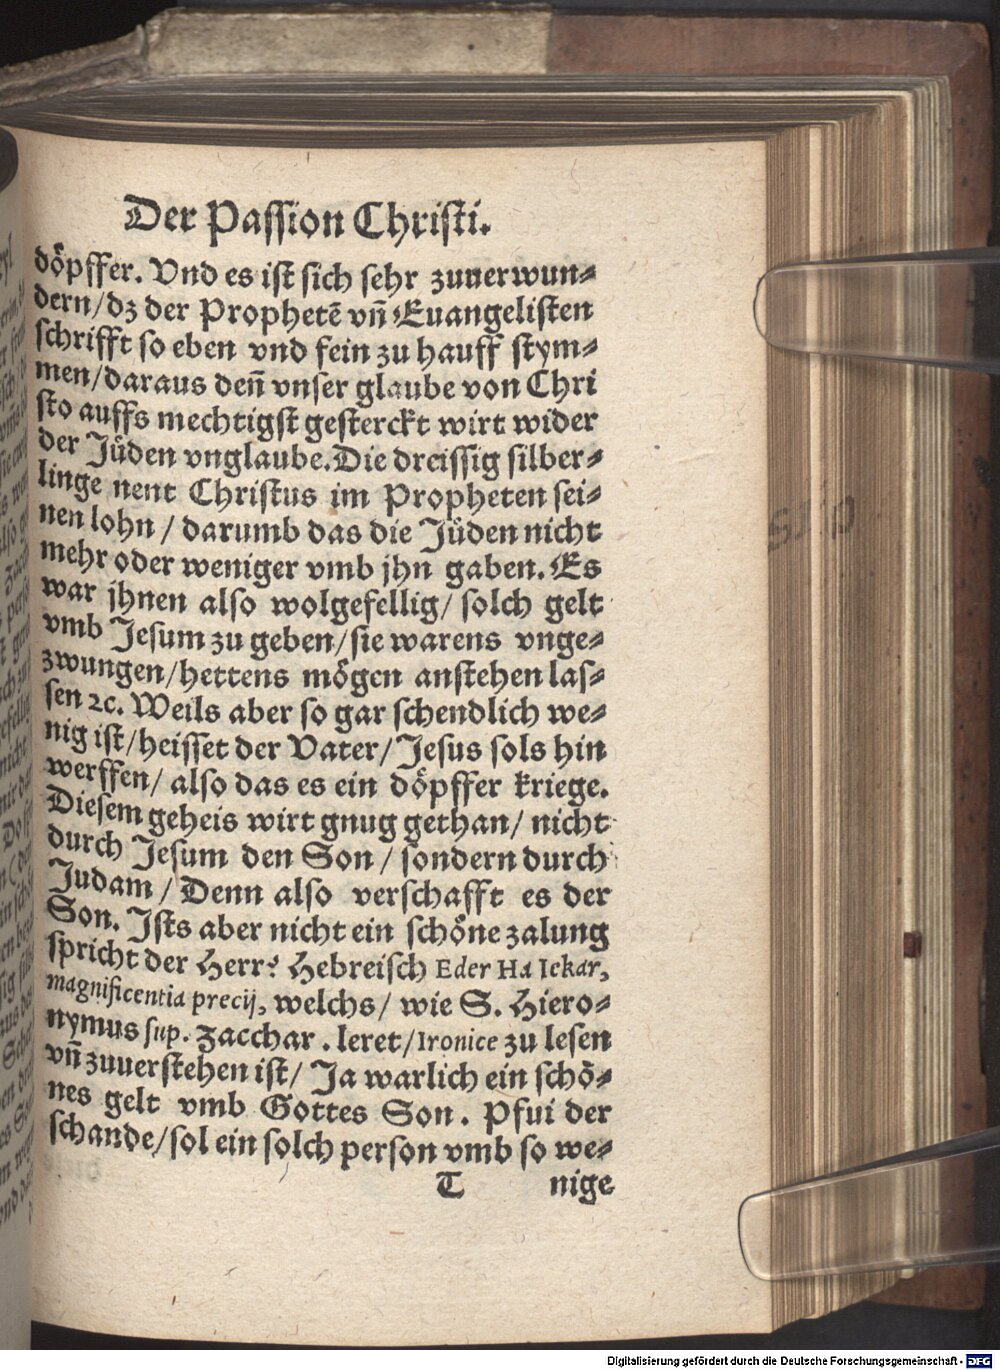 Der Passion Christi.
döpffer. Vnd es ist sich sehr zuuerwun⸗
dern/dz der Prophetē vn̄ Euangelisten
schrifft so eben vnd fein zu hauff stym⸗
men/daraus den̄ vnser glaube von Chri
sto auffs mechtigst gesterckt wirt wider
der Jüden vnglaube.Die dreissig silber⸗
linge nent Christus im Propheten sei⸗
nen lohn / darumb das die Jüden nicht
mehr oder weniger vmb jhn gaben. Es
war jhnen also wolgefellig/ solch gelt
vmb Jesum zu geben/sie warens vnge⸗
zwungen/hettens mögen anstehen las⸗
sen ꝛc. Weils aber so gar schendlich we⸗
nig ist/heisset der Vater/Jesus sols hin
werffen/ also das es ein döpffer kriege.
Diesem geheis wirt gnug gethan/ nicht
durch Jesum den Son / sondern durch
Judam / Denn also verschafft es der
Son. Ists aber nicht ein schöne zalung
spricht der Herr? Hebreisch Eder Ha Ickar,
magnificentia precij, welchs/ wie S. Hiero⸗
nymus sup. Zacchar . leret/Ironice zu lesen
vn̄ zuuerstehen ist/ Ja warlich ein schö⸗
nes gelt vmb Gottes Son. Pfui der
schande/sol ein solch person vmb so we⸗
T nige
Digitalisierung gefördert durch die Deutsche Forschungsgemeinschaft - DFG